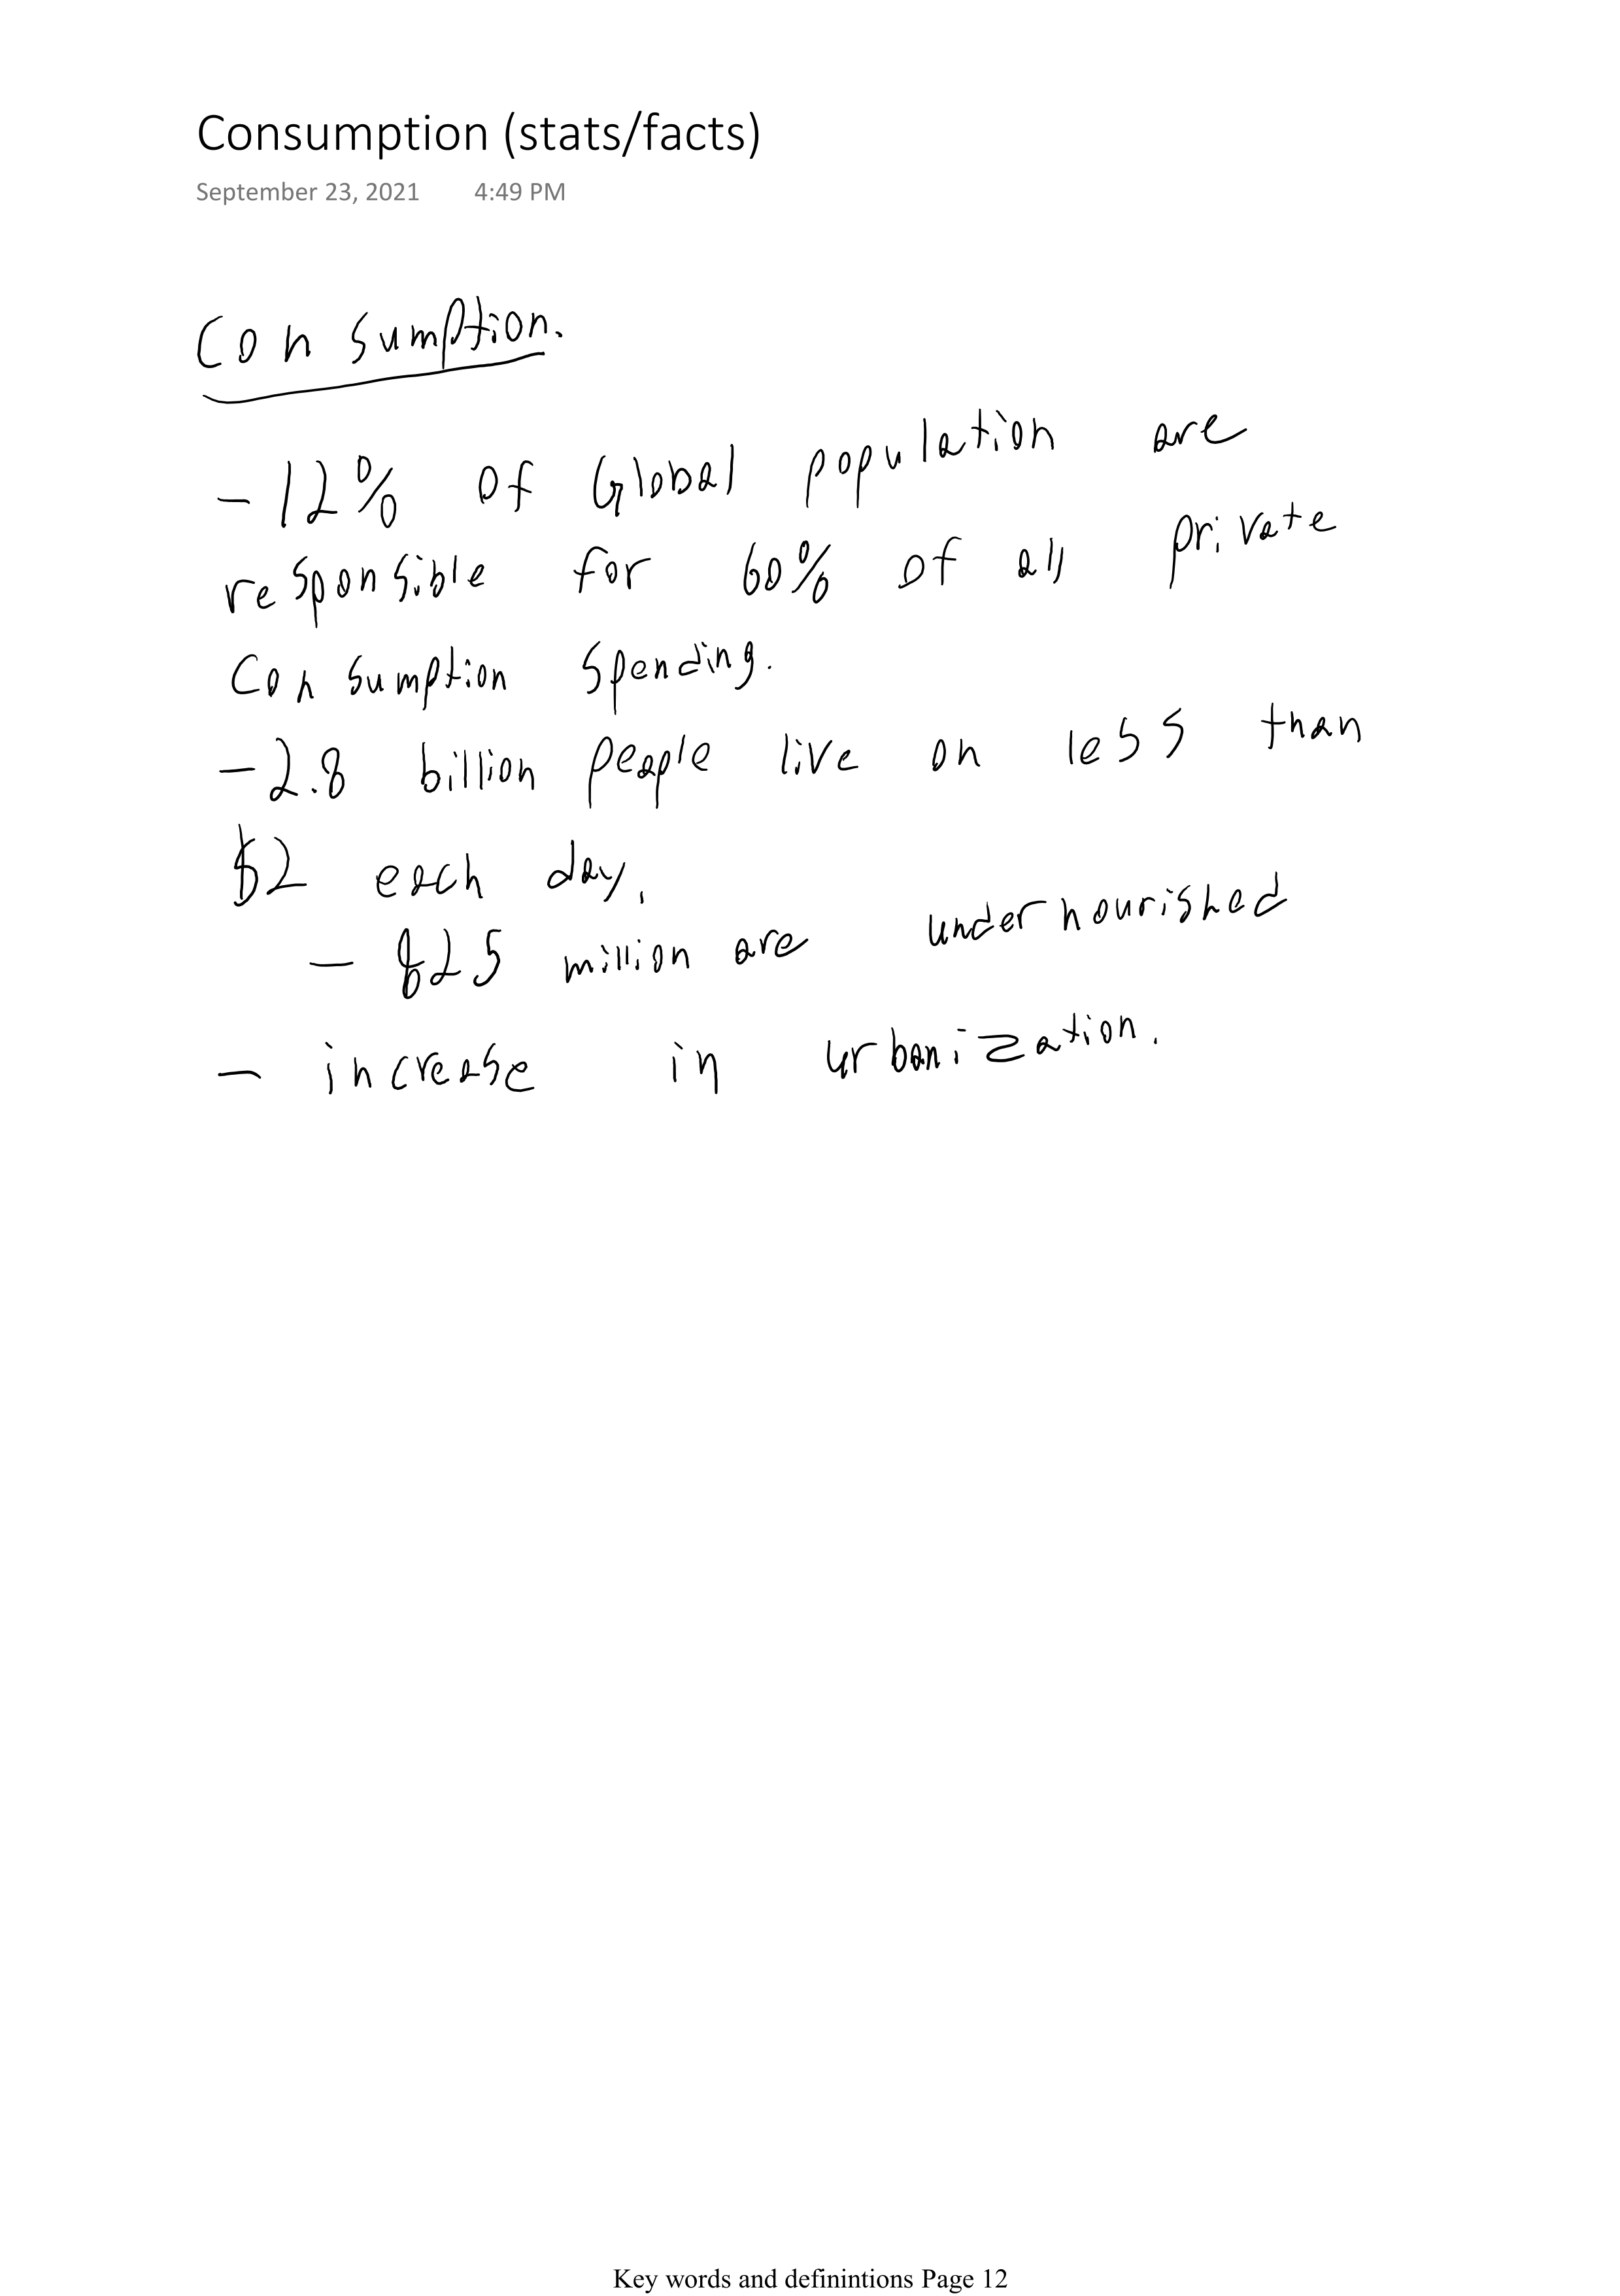 Consumption (stats/facts)
September 23, 2021 4:49 PM
Consumption.
- 12% of Global population are
responsible for 60% of all private
Consumption Spending.
- 2.8 billion people live on less than
$2 each day.
- 825 million are undernourished
- increase in urbanization.
Key words and definintions Page 12